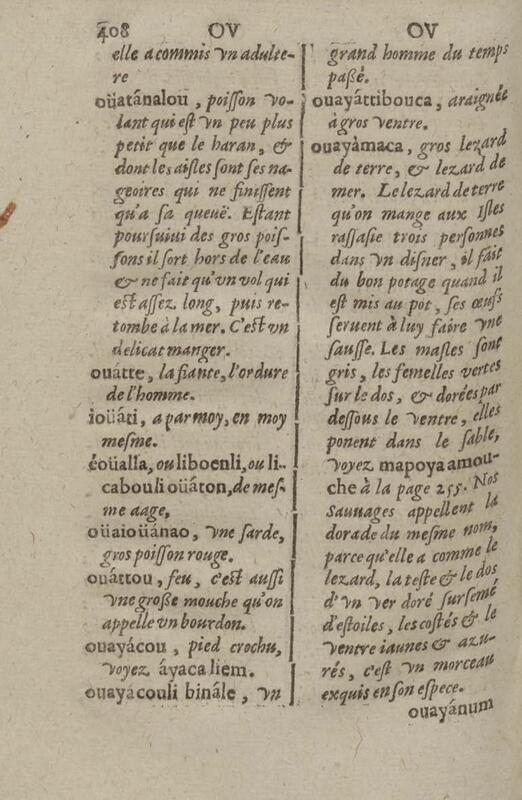 408 OV OV
elle a commis vn adulte-
re
oüatánalou, poisson vo-
lant qui est vn peu plus
petit que le haran, &
dont les aisles sont ses na-
geoires qui ne finissent
qu'a sa queuë. Estant
poursuiui des gros pois-
sons il sort hors de l'eau
& ne fait qu'vn vol qui
est assez long, puis re-
tombe à la mer. C'est vn
delicat manger.
ouátte, la fiante, l'ordure
de l'homme.
ioüáti, a par moy, en moy
mesme.
éoüalla, ou liboenli, ou li-
cabouli oüáton, de mes-
me aage,
oüaioüánao, vne sarde,
gros poisson rouge.
ouáttou, feu, c'est aussi
vne große mouche qu'on
appelle vn bourdon.
ouayácou, pied crochu,
voyez áyaca liem.
ouayácouli binále, vn
grand homme du temps
paßé.
ouayáttibouca, araignée
à gros ventre.
ouayàmaca, gros lezard
de terre, & lezard de
mer. Le lezard de terre
qu'on mange aux Isles
rassasie trois personnes
dans vn disner, il fait
du bon potage quand il
est mis au pot, ses œufs
seruent à luy faire vne
sausse. Les masles sont
gris, les femelles vertes
sur le dos, & dorées par
dessous le ventre, elles
ponent dans le sable,
voyez mapoya amou-
che à la page 255. Nos
Sauuages appellent la
dorade du mesme nom,
parce qu'elle a comme le
lezard, la teste & le dos
d'vn ver doré sursemé
d'estoiles, les costés & le
ventre iaunes & azu-
rés, c'est vn morceau
exquis en son espece.
ouayánum